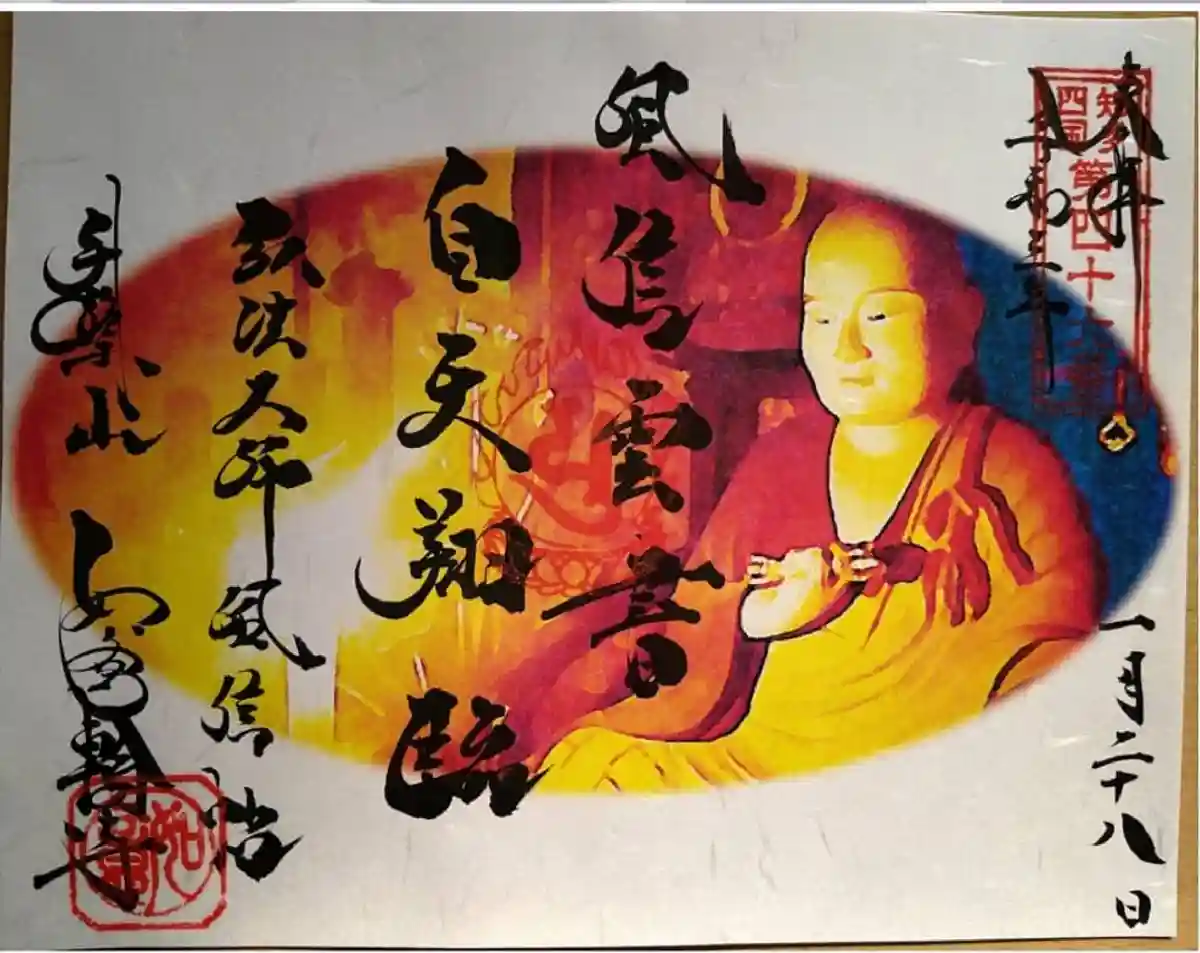 奉拝
令和三年
一月二十八日
知多
四国
第四十六番
風信雲書
自天翔臨
弘法大師風信帖
井際山 如意輪寺